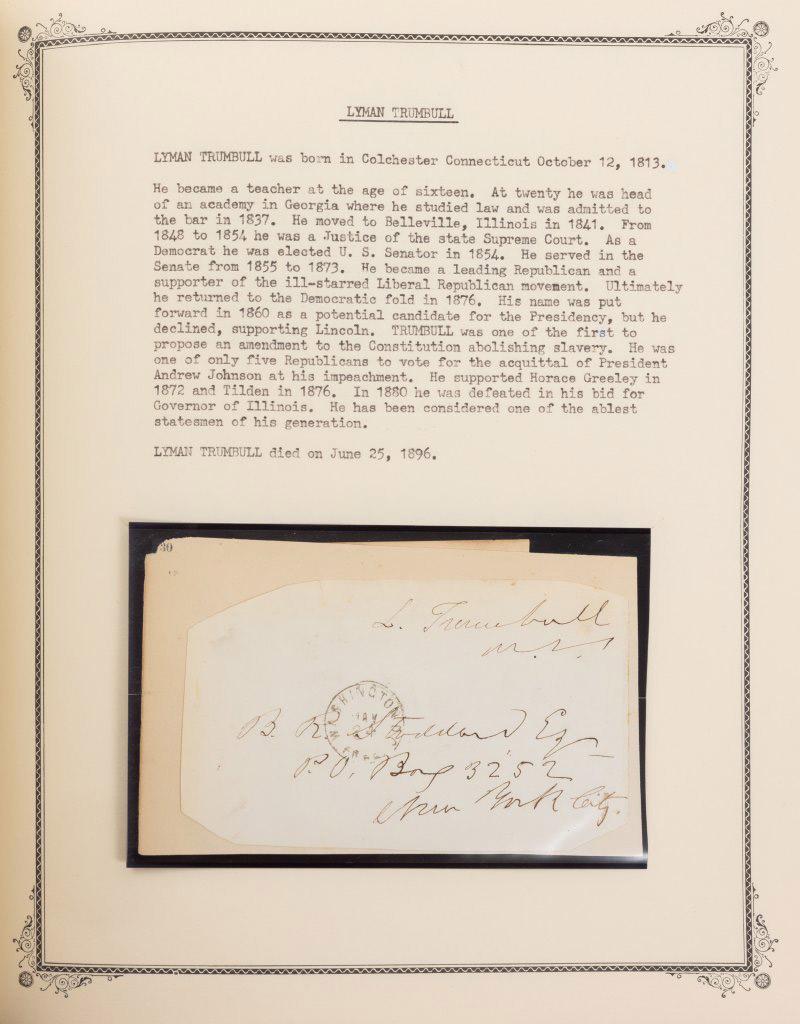 LYMAN TRUMBULL
LYMAN TRUMBULL was born in Colchester Connecticut October 12, 1813.
He became a teacher at the age of sixteen. At twenty he was head
of an academy in Georgia where he studied law and was admitted to
the bar in 1837. He moved to Belleville, Illinois in 1841. From
1848 to 1854 he was a Justice of the state Supreme Court. As a
Democrat he was elected U. S. Senator in 1854. He served in the
Senate from 1855 to 1873. He became a leading Republican and a
supporter of the ill-starred Liberal Republican movement. Ultimately
he returned to the Democratic fold in 1876. His name was put
forward in 1860 as a potential candidate for the Presidency, but he
declined, supporting Lincoln. TRUMBULL was one of the first to
propose an amendment to the Constitution abolishing slavery. He was
one of only five Republicans to vote for the acquittal of President
Andrew Johnson at his impeachment. He supported Horace Greeley in
1872 and Tilden in 1876. In 1880 he was defeated in his bid for
Governor of Illinois. He has been considered one of the ablest
statesmen of his generation.
LYMAN TRUMBULL died on June 25, 1896.
30
L. Trumbull
WASHINGTON
JAN
FREE
B. R. Stoddard Esq
P.O. Box 3252
New York City.